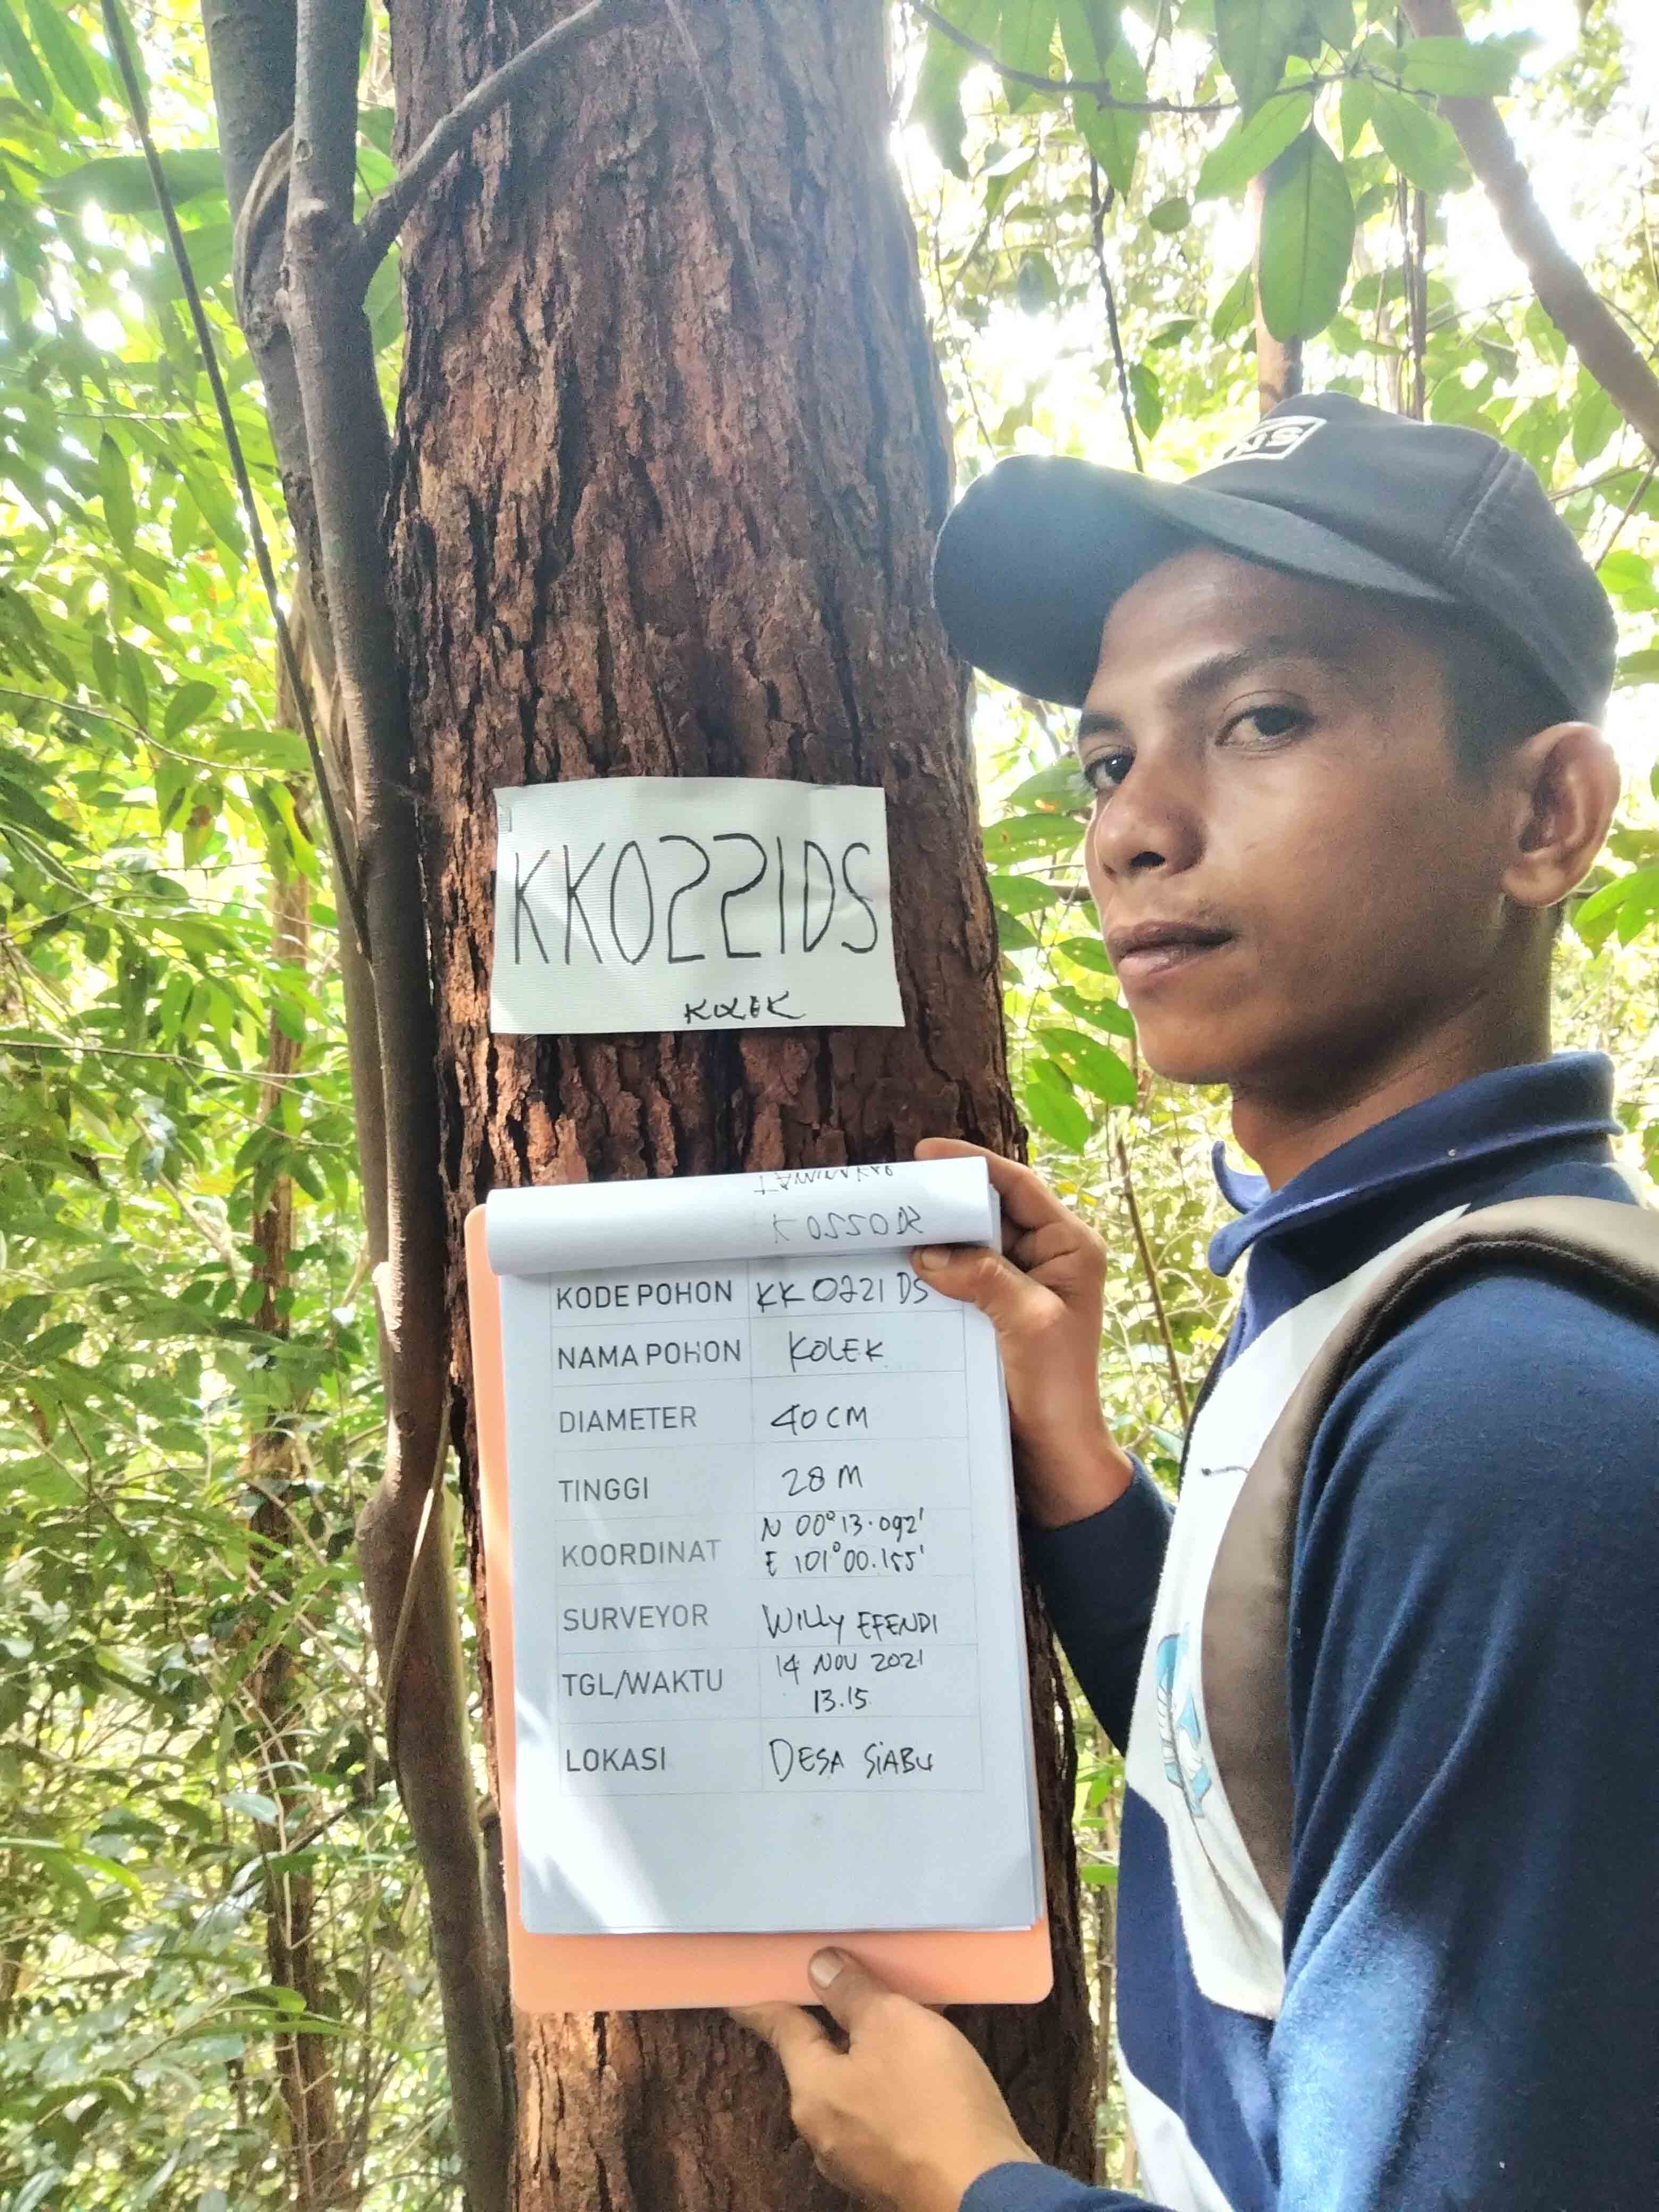 KK0221DS
KOLEK
KODE POHON KK 0221 DS
NAMA POHON KOLEK
DIAMETER 40 CM
TINGGI 28 M
KOORDINAT N 00° 13.092'
E 101° 00.155'
SURVEYOR WILLY EFENDI
TGL/WAKTU 14 NOV 2021
13.15
LOKASI DESA SIABU